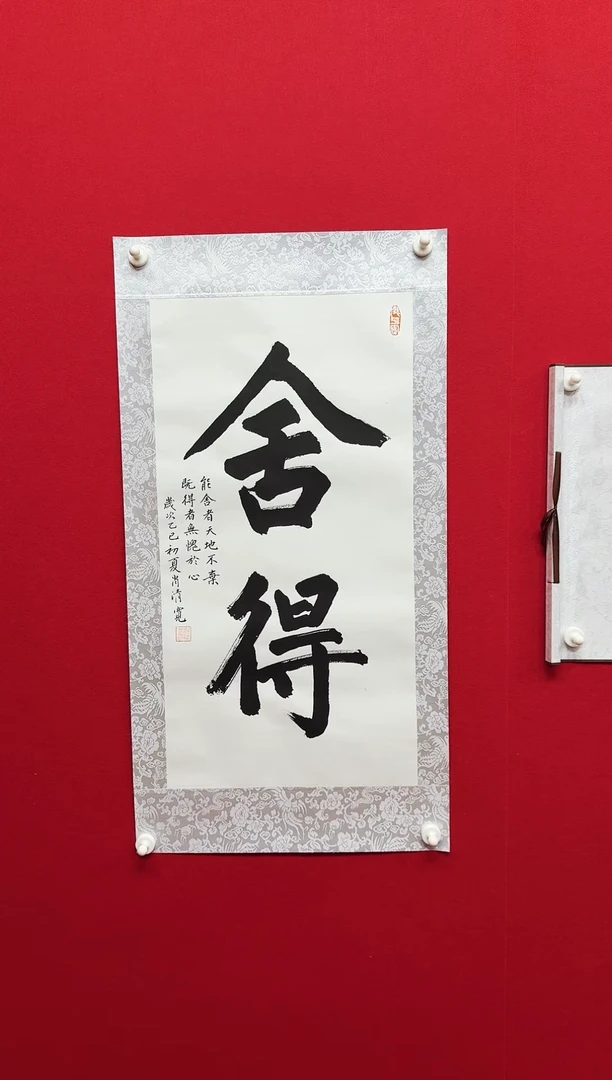 舍得
能舍者天地不棄
既得者無愧於心
歲次乙巳初夏肖清寬